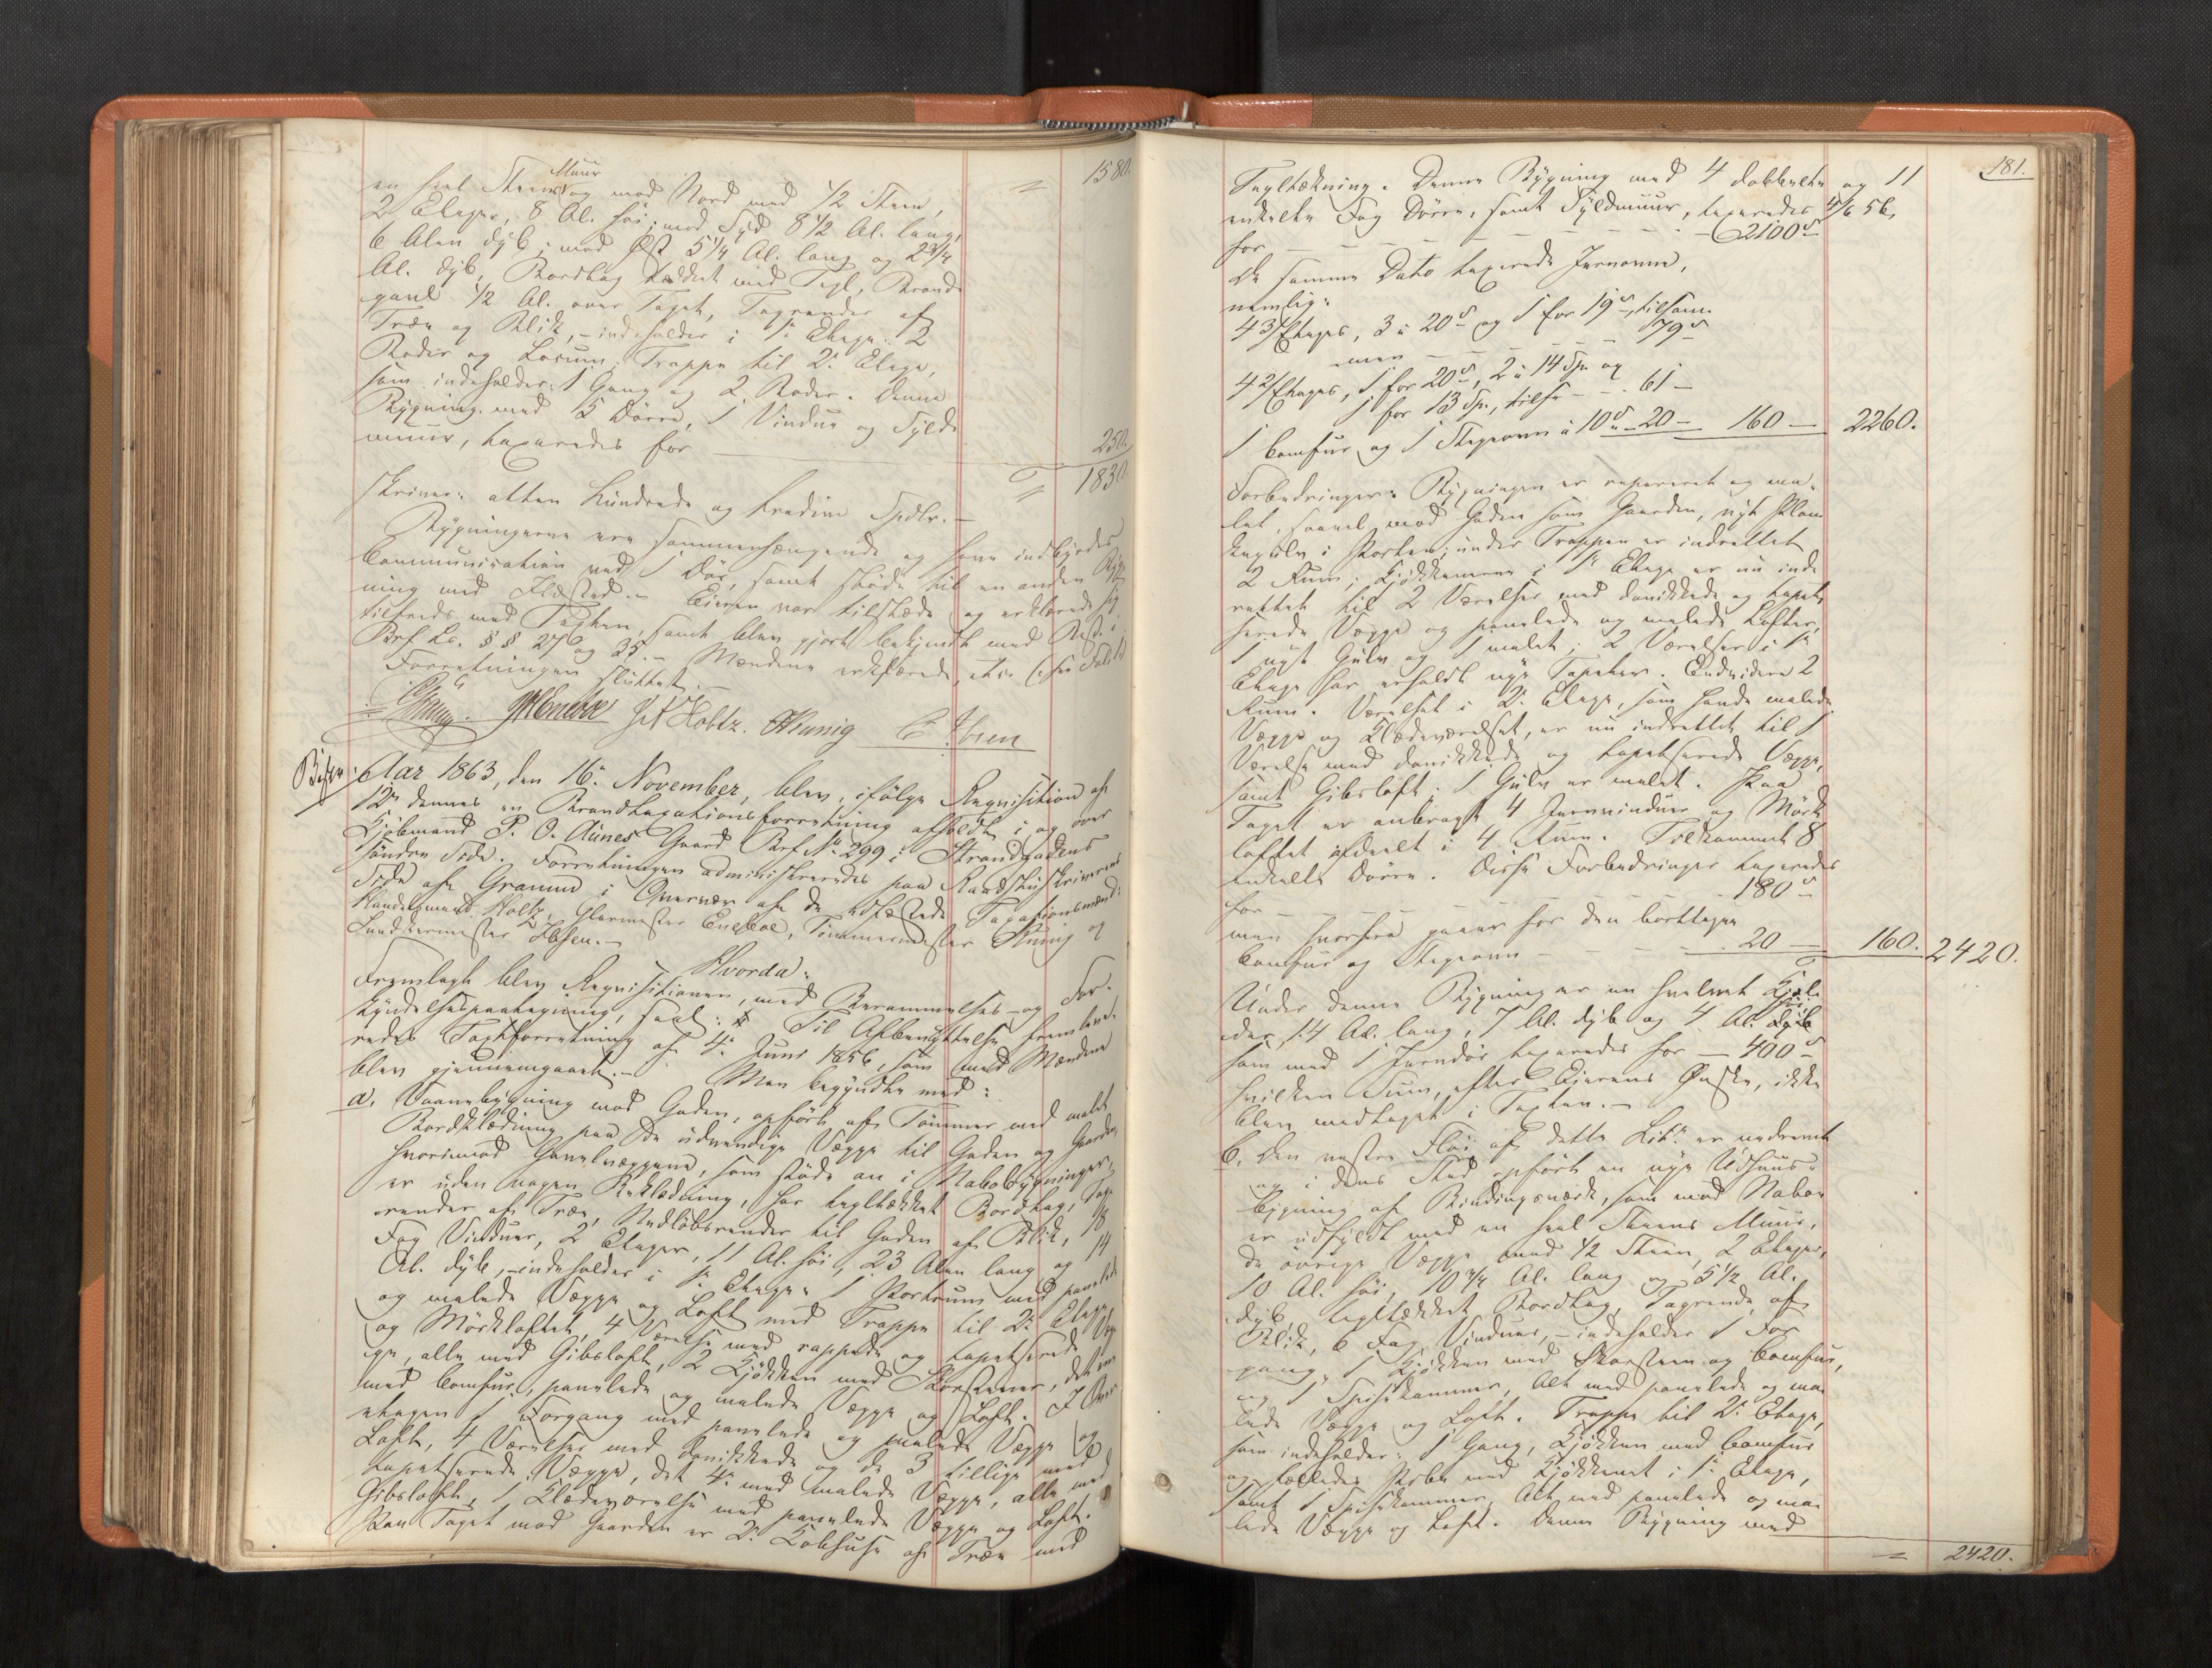 1580.
en heel Steens Muur og mod Nord med 1/2 Steen,
2 Etager, 8 Al. høi; mod Syd 8 1/2 Al. lang,
6 Alen dyb; mod Øst 5 1/4 Al. lang og 2 3/4
Al. dyb, Bordtag tækket med Tegl, Brand-
gavl 1/2 Al. over Taget, Tagrender af
Træe og Blik, - indeholder i 1e Etage: 2
Boder og Locum; Trappe til 2e Etage,
som indeholder: 1 Gang og 2 Boder. Denne
Bygning med 15 Dørre, 1 Vindue og Fyld-
muur, taxeredes for 250.
1830.
skriver: atten Hundrede og tredive Spdlr. -
Bygningerne ere sammenhængende og have indbyrdes
Communication ved 1 Dør, samt støde til en anden Byg-
ning med Ildsted. - Eieren var tilstæde og erklærede sig
tilfreds med Taxten, samt blev gjort bekjendt med
Brf. Lo. §§ 27 og 35. - Mændene erklærede, etc.
Forretningen sluttet. -
Holtz. Kunig Ibsen
Aar 1863, den 16e November, blev, ifølge Requisition af
12e dennes en Brandtaxationsforretning afholdt i og over
Kjøbmand P. O. Aunes Gaard Brf. No 299 i Strandgadens
søndre Side. Forretningen administreredes paa Raadstueskriverens
Side af Gramm i Overvær af de edfæstede Taxationsmænd:
Handelsmand Holtz, Glarmester Eneboe, Tømmermester Kunig og
Sundkermester Ibsen. -
Hvorda:
Fremlagt blev Requisitionen, med Berammelses- og For-
kyndelsespaategning, saal: Til Afbenyttelse fremlave-
redes Taxtforretning af 4e Juni 1856, som med Mændene
blev gjennemgaaet. - Man begyndte med:
a. Vaanebygning mod Gaden, opført af Tømmer med malet
Bordklædning paa de udvendige Vægge til Gaden og Gaarden,
hvorimod Gavlvæggene, som støde an i Nabobygninger,
er uden nogen Beklædning, har tegltækket Bordtag, Tag-
render af Træe, Nedløbsrender til Gaden af Blik, 18
Fag Vinduer, 2 Etager, 11 Al. høi, 23 Alen lang og 14
Al. dyb, - indeholder i 1e Etage: 1 Portrum med panelede
og malede Vægge og Loft med Trappe til 2e Etage
og Mørkloftet, 4 Værelser med rappede og tapetserede Væg-
ge, alle med Gibsloft, 2 Kjøkken med Skorstener, det ene
med Comfur, panelede og malede Vægge og Loft. I Over-
etagen 1 Forgang med panelede og malede Vægge og
Loft, 4 Værelser med donikkede og de 3 tillige med
tapetserede Vægge, det 4e med malede Vægge, alle med
Gibsloft, 1 Klædeværelse med panelede Vægge og Loft.
Paa Taget mod Gaarden er 2e Kobhuse af Træe med
181.
Tegltækning. Denne Bygning med 4 dobbelte og 11
enkelte Fag Dørre, samt Fyldmuur, taxeredes 4/6 56,
for - - - 2100
De samme Dato taxerede Jernovne,
nemlig:
4 3/Etages, 3 a 20 og 1 for 19, tilsam-
men - - - 79
4 2/Etages, 1 for 20, 2 a 14 Sp. og
1 for 13 Sp., tils. - 61 -
1 Comfur og 1 Stegeovn a 10 - 20 - 160 - 2260.
Forbedringer: Bygningen er repareret og ma-
let, saavel mod Gaden som Gaarden, nyt Plan-
kegulv i Porten; under Trappen er indrettet
2 Rum; Kjøkkenerne i 1e Etage er nu ind-
rettet til 2 Værelser med donikkede og tapet-
serede Vægge og panelede og malede Lofter,
1 nyt Gulv og 1 malet; 2 Værelser i 1e
Etage har erholdt nye Tapeter. Endvidere 2
Rum. Værelset i 2e Etage, som havde malede
Vægge og Klædeværelset, er nu indrettet til 1
Værelse med donikkede og tapetserede Vægge,
samt Gibsloft; 1 Gulv er malet. Paa
Taget er anbragt 4 Jernvinduer og Mørk-
loftet afdeelt i 4 Rum. Tilkommet 8
enkelte Dørre. Disse Forbedringer taxeredes
for - - - 180
men herfra gaaer for den borttagne
Comfur og Stegeovn - - - 20 - 160. 2420.
Under denne Bygning er en hvælvet Kjel-
der, 14 Al. lang, 7 Al. dyb og 4 Al. høi
som med 1 Jerndør taxeredes for - 400
hvilken Sum, efter Eierens Ønske, ikke
blev medtaget i Taxten. -
b. Den vestre Fløi af dette Litr. er nedrevet
og i dens Sted opført en nye Udhuus-
bygning af Bindingsværk, som mod Naboen
er udfyldt med en heel Steens Muur,
de øvrige Vægge med 1/2 Steen, 2 Etager,
10 Al. høi, 10 3/4 Al. lang og 5 1/2 Al.
dyb, tegltækket Bordtag, Tagrende af
Blik, 6 Fag Vinduer, - indeholder 1 For-
gang, 1 Kjøkken med Skorsteen og Comfur,
og 1 Spiskammer, Alt med panelede og ma-
lede Vægge og Loft. Trappe til 2e Etage,
som indeholder: 1 Gang, Kjøkken med Comfur
og fælleds Pibe med Kjøkkenet i 1e Etage,
samt 1 Spiskammer, Alt med panelede og ma-
lede Vægge og Loft. Denne Bygning med
2420.